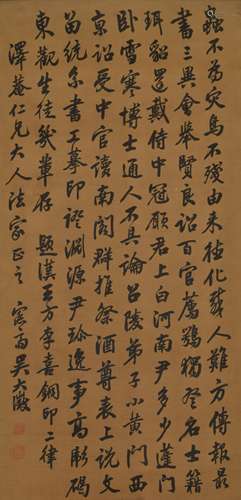 蟲不為災鳥不殘由来德化感人難方傳報最
書三異會舉賢良詔百官薦鶚獨登名士籍
珥貂還戴侍中冠願君上白河南尹多少蓬門
卧雪寒博士通人不具論召陵弟子小黃門西
京詔受中官讀南閣群推祭酒尊表上說文
留統系書工摹印證淵源尹珍逸事高彪碣
東觀生徒幾輩存 題漢王方李喜銅印二律
澤菴仁兄大人法家正之 愙齋吳大澂